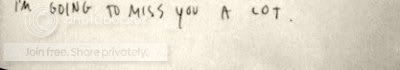 I'M GOING TO MISS YOU A LOT.
photobucket
Join free. Share privately.